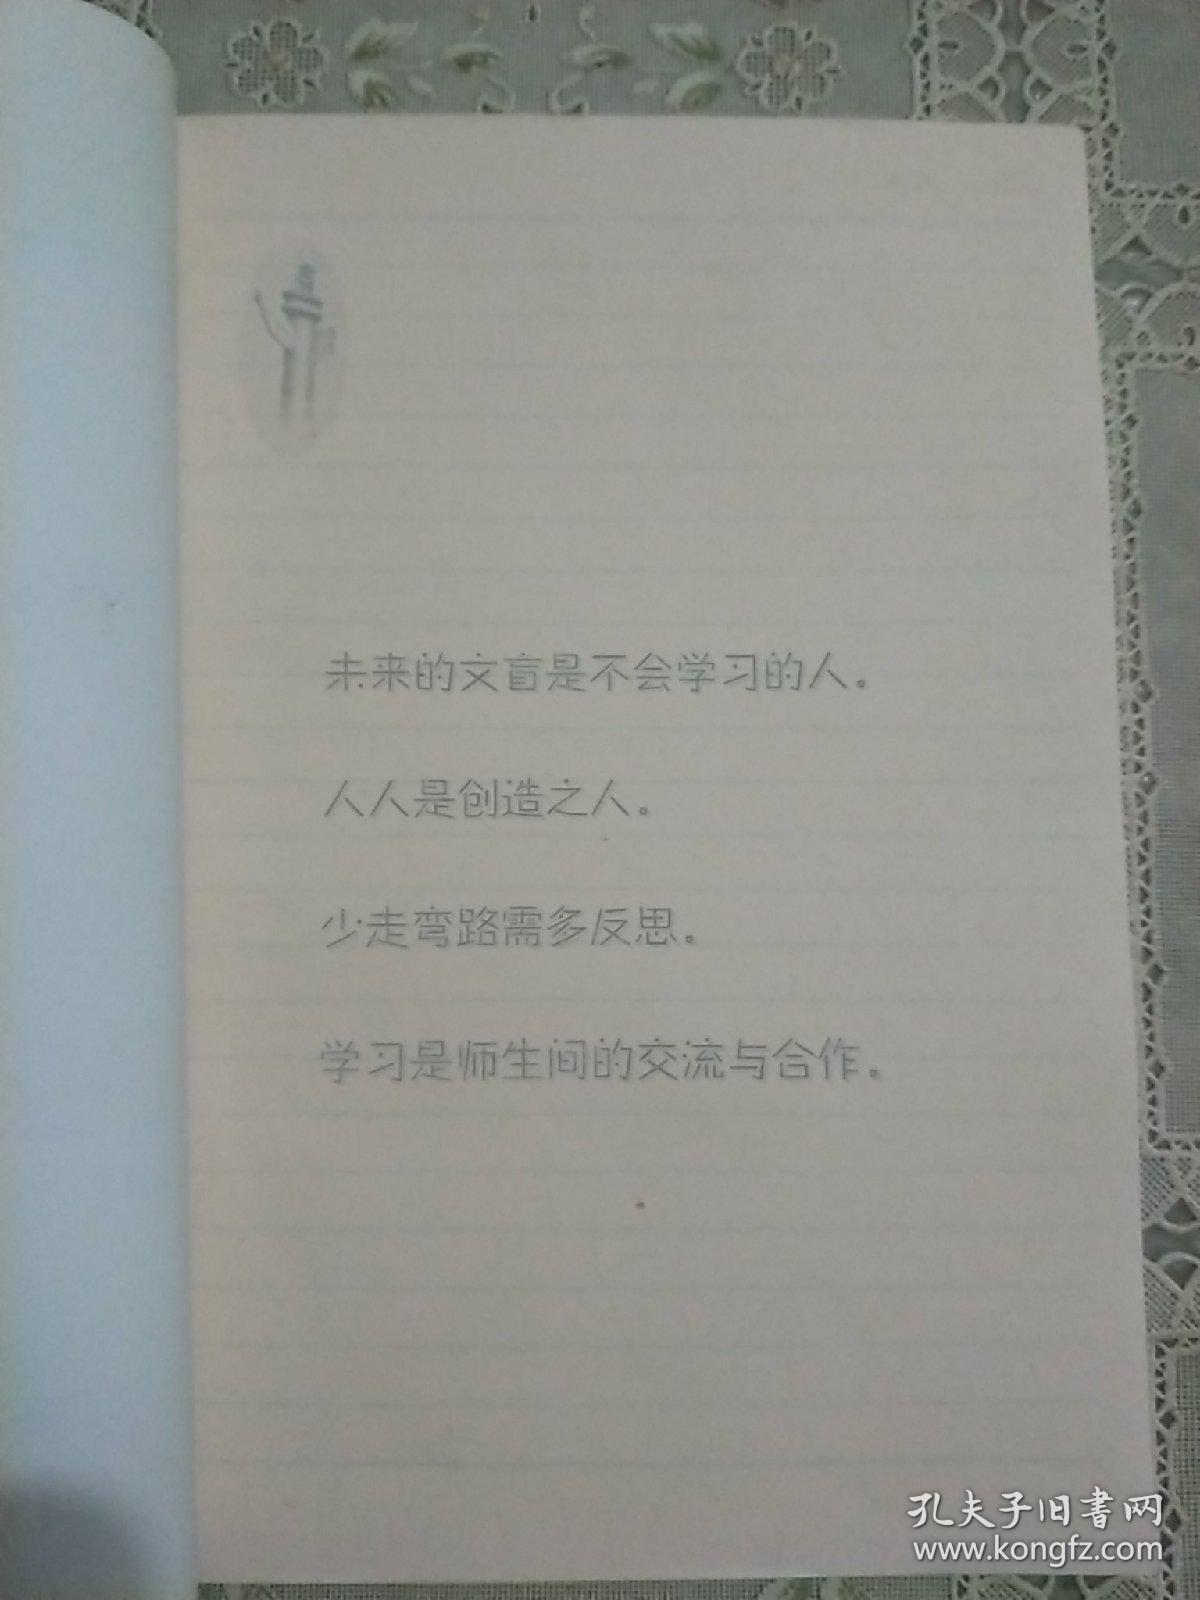 未来的文盲是不会学习的人。
人人是创造之人。
少走弯路需多反思。
学习是师生间的交流与合作。
孔夫子旧書网
www.kongfz.com